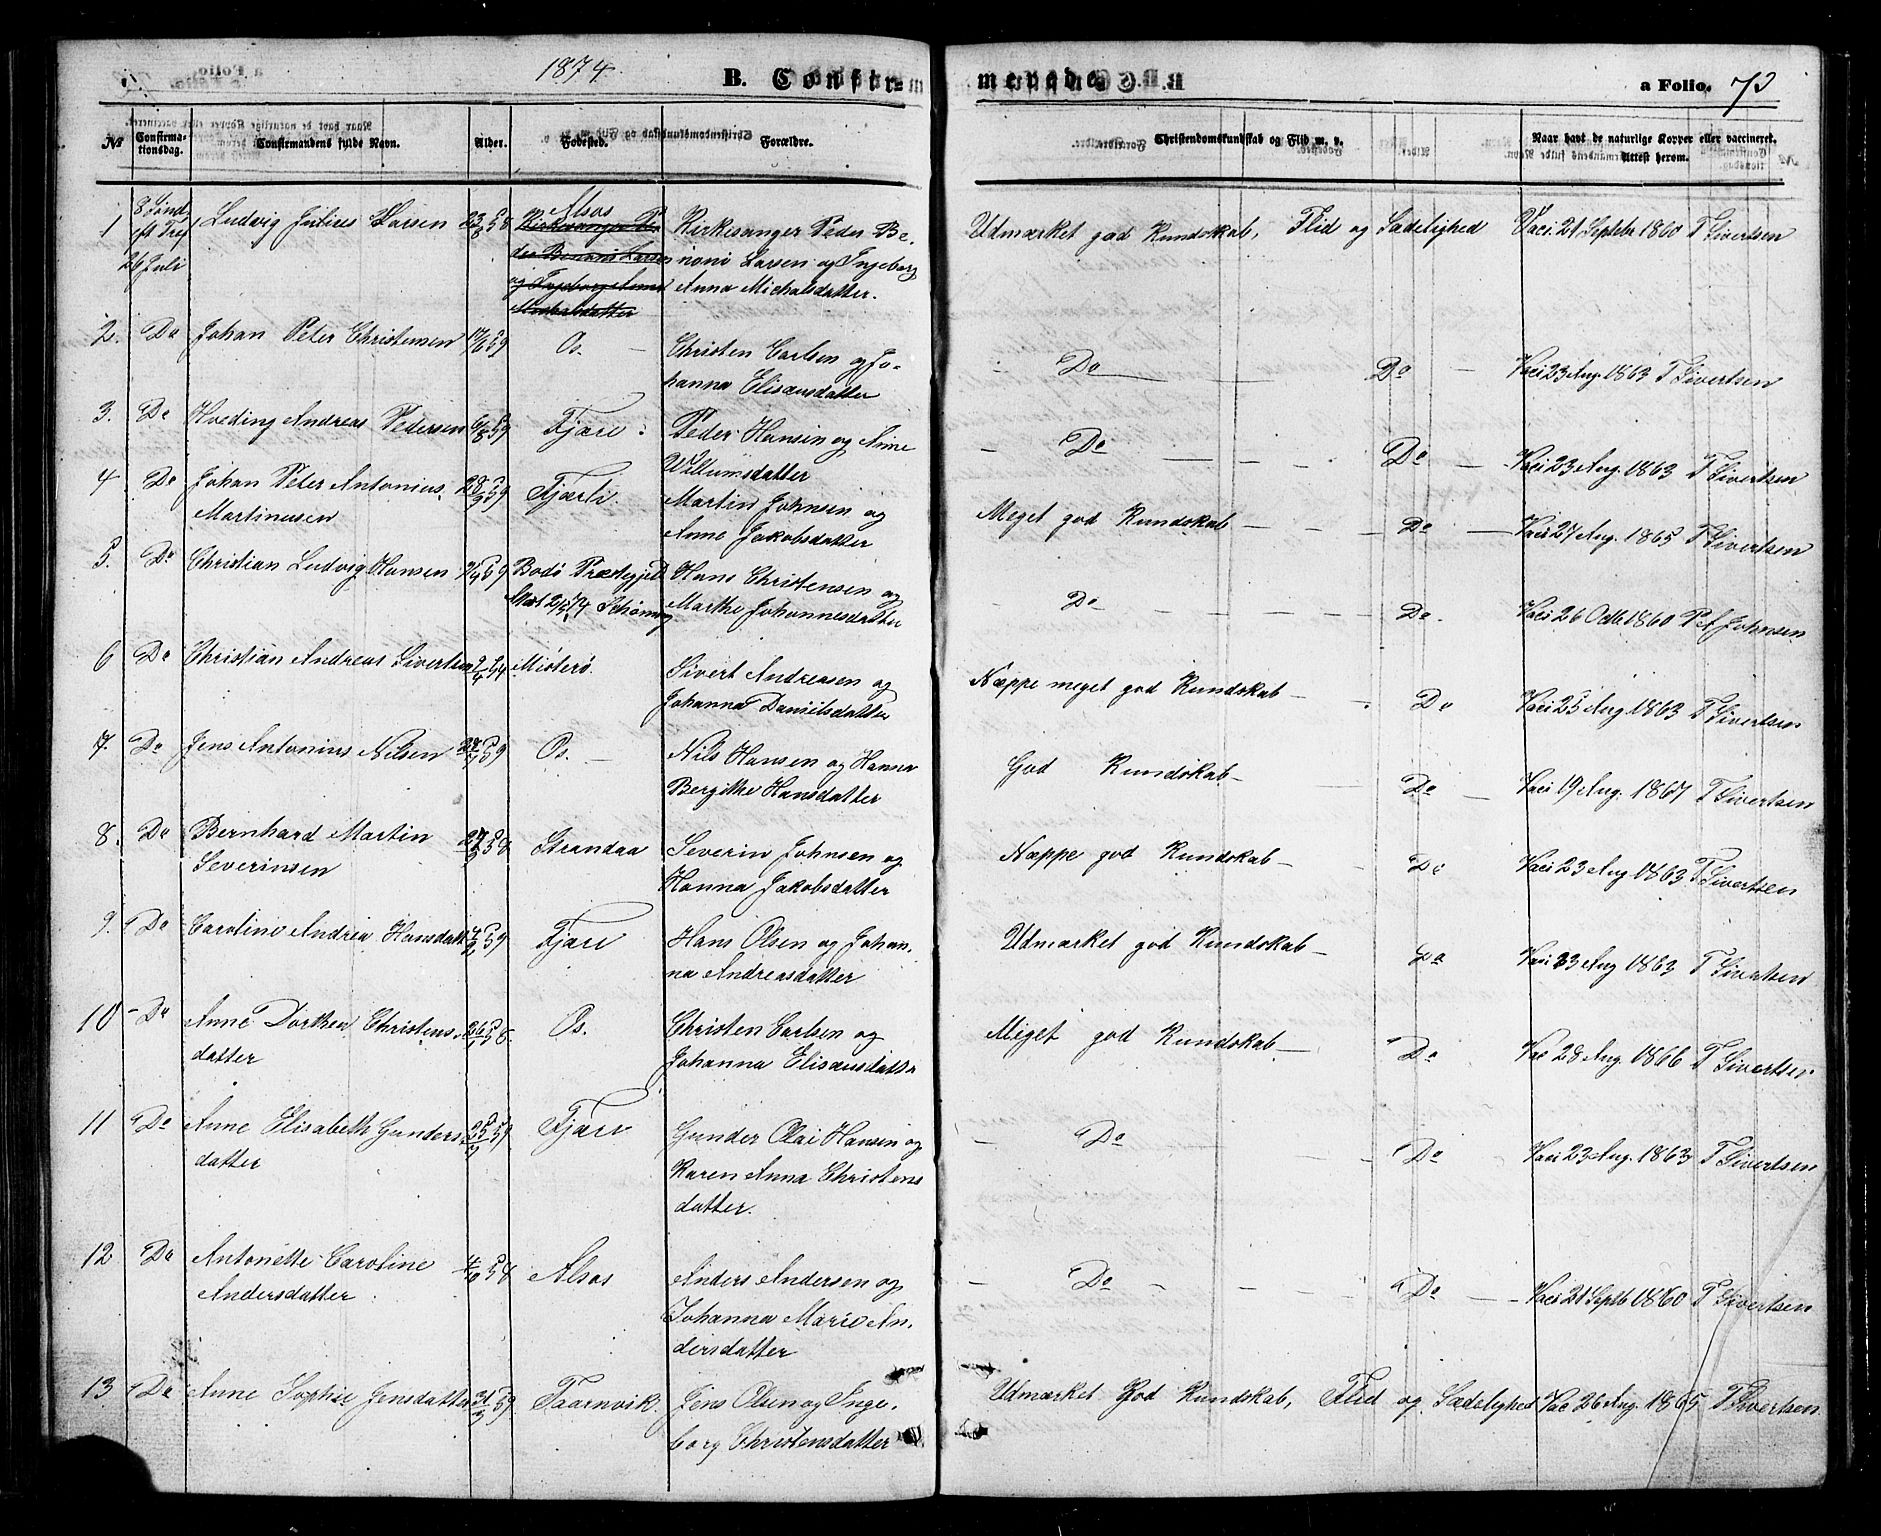 1874.
B. Confirmerede.
a Folio. 73
№ Confirmationsdag. Confirmandens fulde Navn. Alder. Fødested. Forældre. Christendomskundskab og Flid m. v. Naar havt de naturlige Kopper eller vaccineret. Attest herom.
1 8 Sønd. eft Tref 26 Juli Ludvig Julius Larsen 23/8 58 Alsos Kirkesanger Peder Be-
noni Larsen og Ingeborg
Anna Michalsdatter.
Udmærket god Kundskab, Flid og Sædelighed Vaci 21 Septebr 1860 T Sivertsen
Kirkesanger Pe-
der Benoni Larsen
og Ingeborg Anna
Michalsdatter
2. Do Johan Peter Christensen 59 Os. Christen Carlsen og Jo-
hanna Elisæusdatter
Do Do Vaci 23 Aug. 1863 T Sivertsen
3. Do Hveding Andreas Pedersen 6/8 59 Fjære. Peder Hansen og Anne
Willumsdatter
Do Do Vaci 23 Aug. 1863 T Sivertsen
4 Do Johan Peter Antonius 59 Fjærli. Martin Johnsen og
Martinusen Anne Jakobsdatter
Meget god Kundskab Do Vaci 27 Aug. 1865 T Sivertsen
5. Do Christian Ludvig Hansen 59 Bodø Præstegjeld Hans Christensen og
Marthe Johannesdatter
Do Do. Vaci 26 Octb 1860 Johnsen
6 Do Christian Andreas Sivertsen Misterø. Sivert Andreasen og
Johanna Danielsdatter
Næppe meget god Kundskab Do Vaci 25 Aug. 1863 T Sivertsen
7. Do Jens Antonius Nilsen 59 Os. Nils Hansen og Hanna
Bergithe Hansdatter
God Kundskab Do Vaci 19 Aug. 1867 T Sivertsen
8. Do Bernhard Martin 58 Strandaa Severin Johnsen og
Severinsen Hanna Jakobsdatter
Næppe god Kundskab Do Vaci 23 Aug 1863 T Sivertsen
9. Do Caroline Andrea Hansdatt 59 Fjære Hans Olsen og Johan-
na Andreasdatter
Udmærket god Kundskab Do Vaci 23 Aug 1863 T Sivertsen
10 Do Anne Dorthea Christens- 58. Os. Christen Carlsen og
datter Johanna Elisæusdatter
Meget god Kundskab Do Vac 28 Aug. 1866 T Sivertsen
11 Do Anne Elisabeth Gunders- 59 Fjære Gunder Olai Hansen og
datter Karen Anna Christens
datter.
Do Do Vaci 23 Aug. 1863 T Sivertsen
12 Do Antonette Caroline 58 Alsos Anders Andersen og
Andersdatter Johanna Marie An-
dersdatter
Do Do Vaci 21 Septb 1860 T Sivertsen
13 Do Anne Sophie Jensdatter 59 Taarnvik. Jens Olsen og Inge-
borg Christensdatter
Udmærket God Kundskab, Flid og Sædelighed Vac 26 Aug. 1865 T Sivertsen